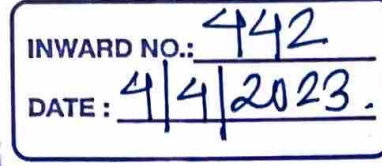 INWARD NO.: 442
DATE : 4|4|2023.